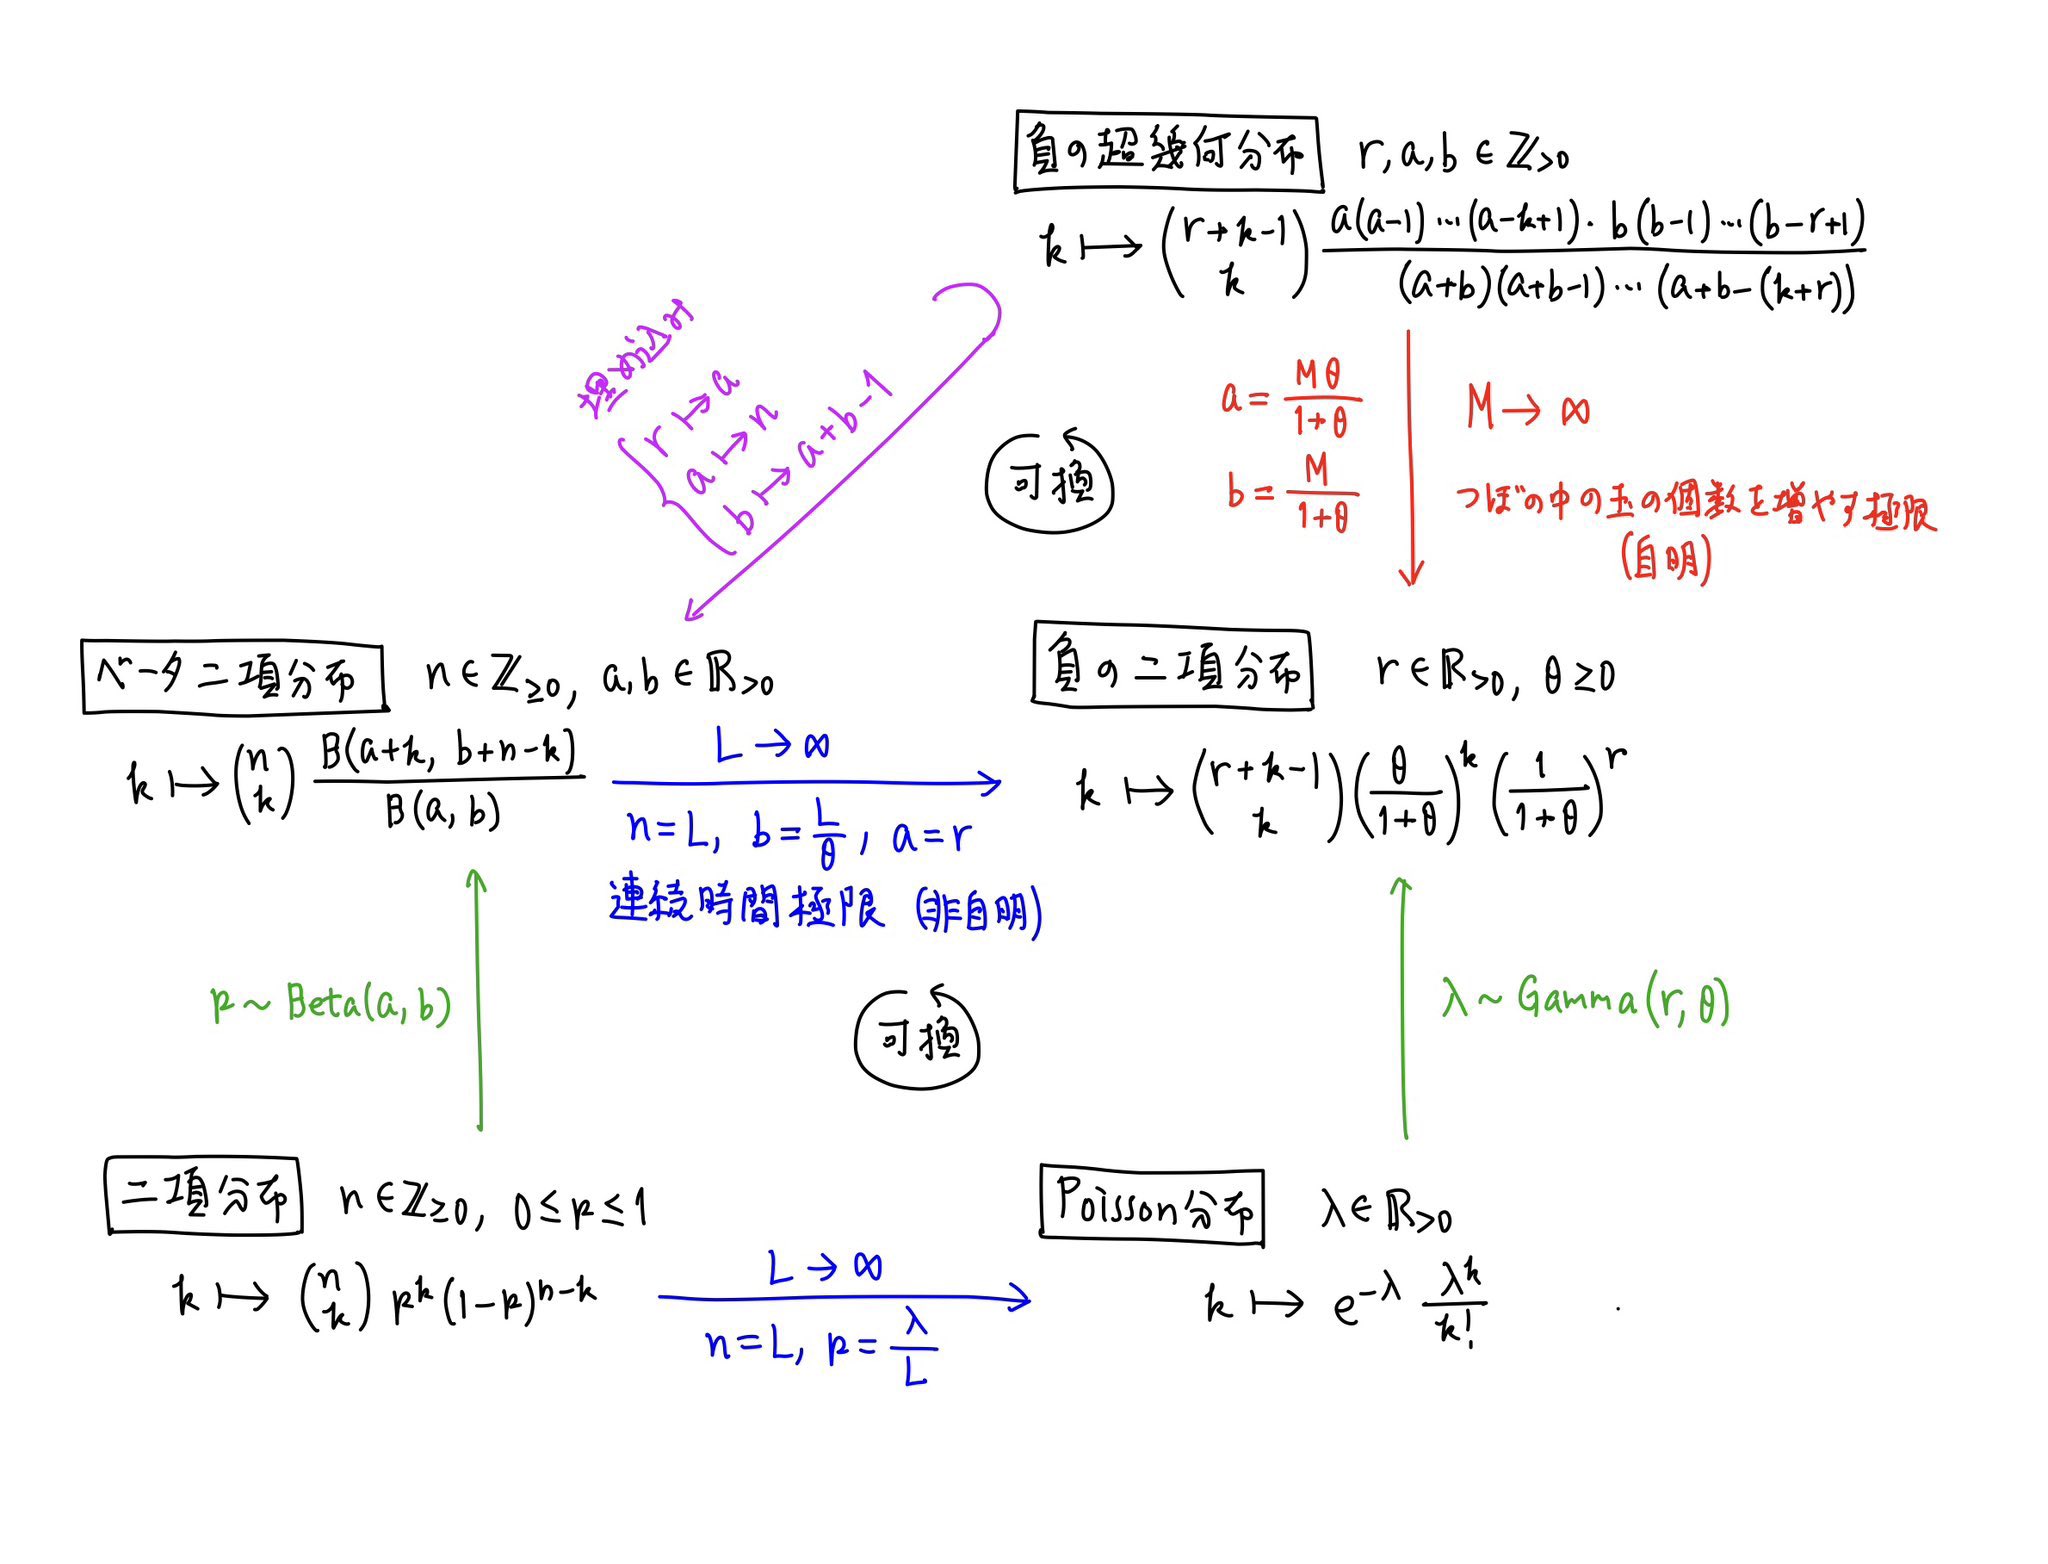 負の超幾何分布 r, a, b ∈ ℤ>0
k ⟼ (r+k-1 k) a(a-1)…(a-k+1)・b(b-1)…(b-r+1) / (a+b)(a+b-1)…(a+b-(k+r))
埋め込み
{ r ↦ a
a ↦ n
b ↦ a+b-1
可換
a = Mθ/(1+θ)
b = M/(1+θ)
M → ∞
つぼの中の玉の個数を増やす極限
(自明)
ベータ二項分布 n ∈ ℤ≥0, a, b ∈ ℝ>0
k ⟼ (n k) B(a+k, b+n-k) / B(a, b)
L → ∞
n=L, b=L/θ, a=r
連続時間極限 (非自明)
負の二項分布 r ∈ ℝ>0, θ ≥ 0
k ⟼ (r+k-1 k) (θ/(1+θ))^k (1/(1+θ))^r
p ~ Beta(a, b)
可換
λ ~ Gamma(r, θ)
二項分布 n ∈ ℤ≥0, 0 ≤ p ≤ 1
k ⟼ (n k) p^k (1-p)^{n-k}
L → ∞
n=L, p=λ/L
Poisson分布 λ ∈ ℝ>0
k ⟼ e^{-λ} λ^k / k!